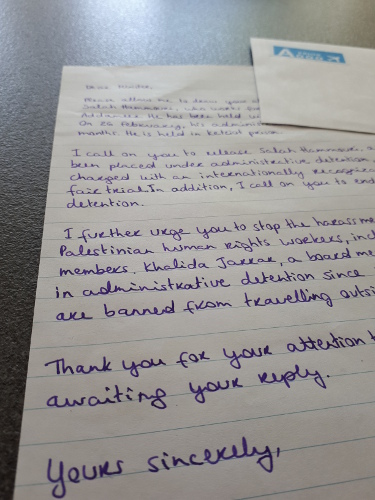 Dear Minister,
Please allow me to draw your
Salah Hammouri, who works
Addameer. He has been held
On 26 February, his
months. He is held in Ketziot prison.
I call on you to release Salah Hammouri,
been placed under administrative detention,
charged with an internationally
fair trial. In addition, I call on you to end
detention.
I further urge you to stop the
Palestinian human rights workers,
members. Khalida Jarrar, a board
in administrative detention since
are banned from travelling
Thank you for your attention
awaiting your reply.
Yours sincerely,